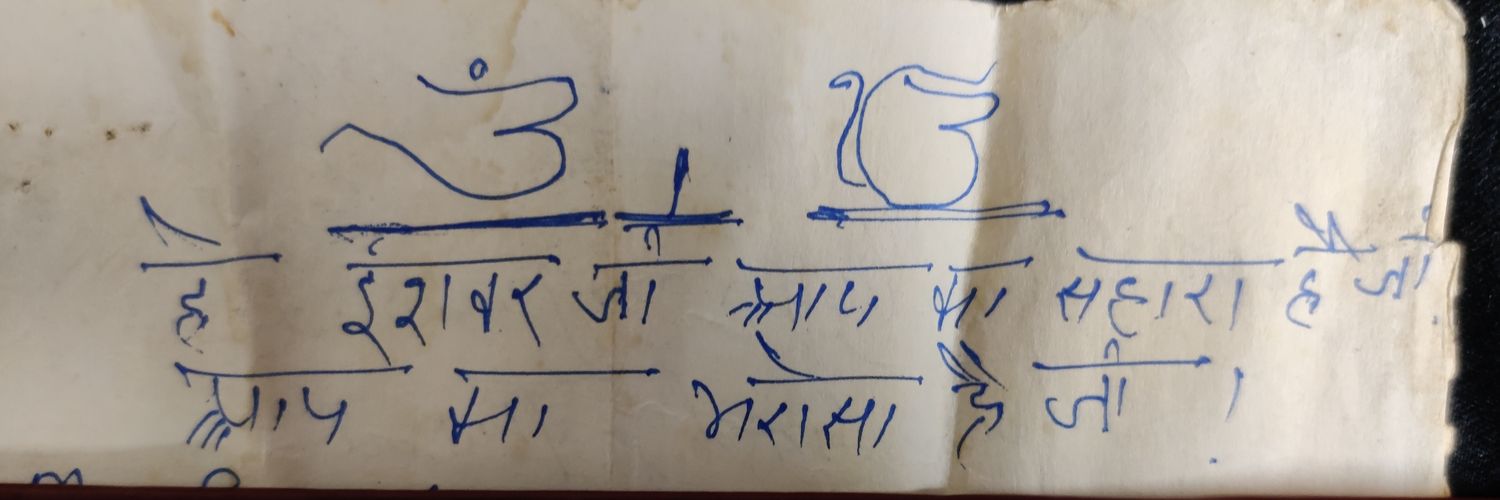 ॐ ੴ
हे ईश्वर जी आप का सहारा है जी
आप का भरोसा है जी।